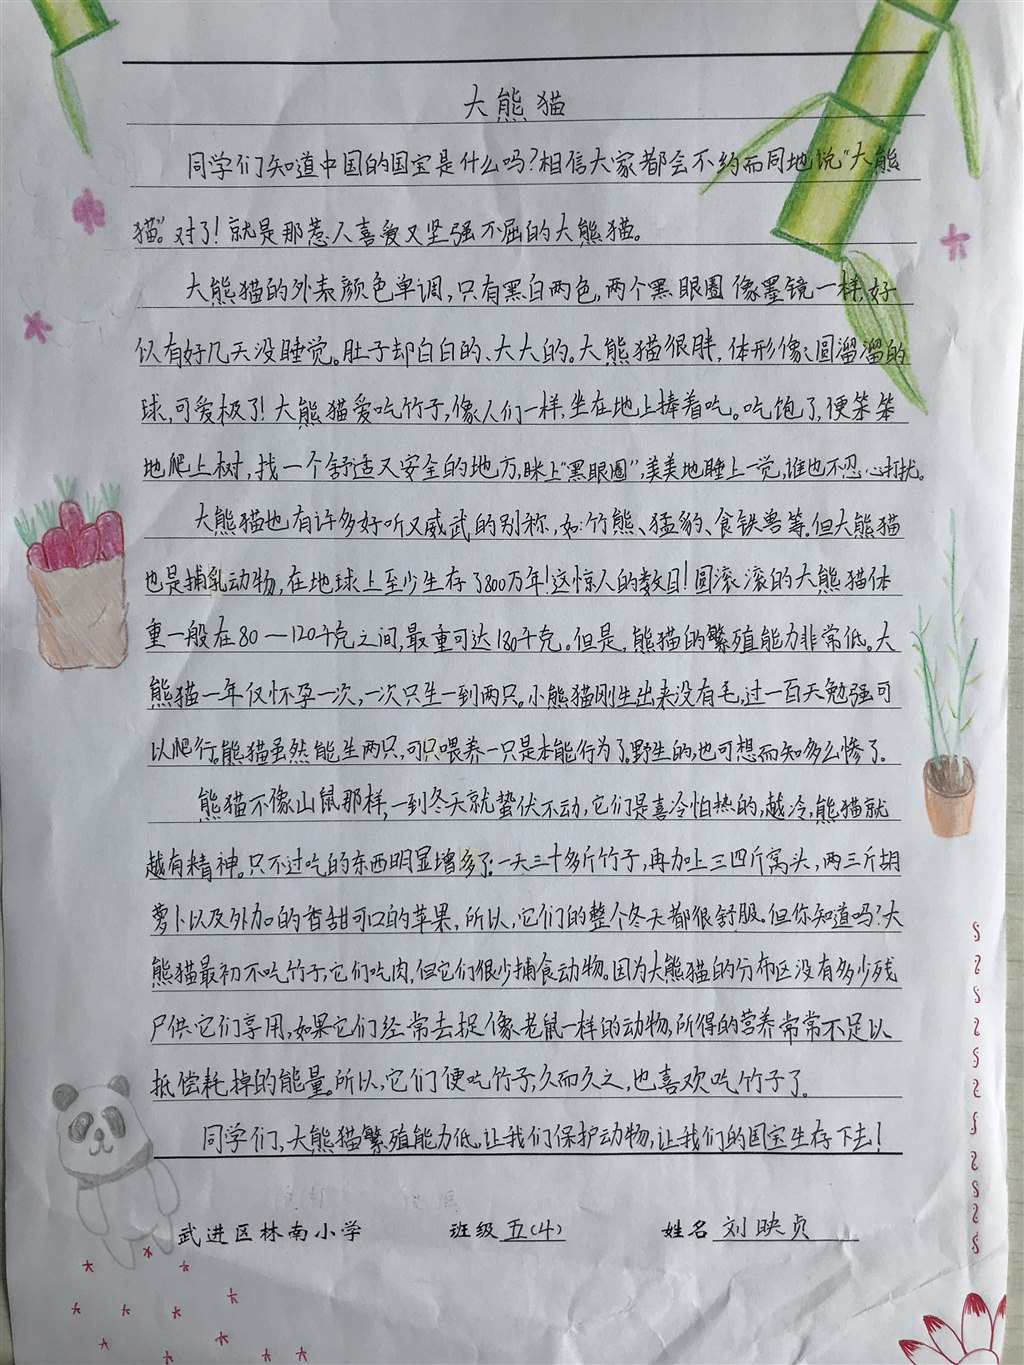 大熊猫
同学们知道中国的国宝是什么吗?相信大家都会不约而同地说"大熊
猫"。对了!就是那惹人喜爱又坚强不屈的大熊猫。
大熊猫的外表颜色单调,只有黑白两色,两个黑眼圈像墨镜一样,好
似有好几天没睡觉。肚子却白白的、大大的。大熊猫很胖,体形像圆溜溜的
球,可爱极了!大熊猫爱吃竹子,像人们一样,坐在地上捧着吃。吃饱了,便笨笨
地爬上树,找一个舒适又安全的地方,眯上"黑眼圈",美美地睡上一觉,谁也不忍心打扰。
大熊猫也有许多好听又威武的别称,如:竹熊、猛豹、食铁兽等。但大熊猫
也是捕乳动物,在地球上至少生存了800万年!这惊人的数目!圆滚滚的大熊猫体
重一般在80—120千克之间,最重可达180千克。但是,熊猫的繁殖能力非常低。大
熊猫一年仅怀孕一次,一次只生一到两只。小熊猫刚生出来没有毛,过一百天勉强可
以爬行。熊猫虽然能生两只,可只喂养一只是本能行为了。野生的,也可想而知多么惨了。
熊猫不像山鼠那样,一到冬天就蛰伏不动,它们是喜冷怕热的,越冷,熊猫就
越有精神。只不过吃的东西明显增多了:一天三十多斤竹子,再加上三四斤窝头,两三斤胡
萝卜以及外加的香甜可口的苹果,所以,它们的整个冬天都很舒服。但你知道吗?大
熊猫最初不吃竹子,它们吃肉,但它们很少捕食动物。因为大熊猫的分布区没有多少残
尸供它们享用,如果它们经常去捉像老鼠一样的动物,所得的营养常常不足以
抵偿耗掉的能量。所以,它们便吃竹子,久而久之,也喜欢吃竹子了。
同学们,大熊猫繁殖能力低,让我们保护动物,让我们的国宝生存下去!
武进区林南小学 班级 五(4) 姓名 刘映贞